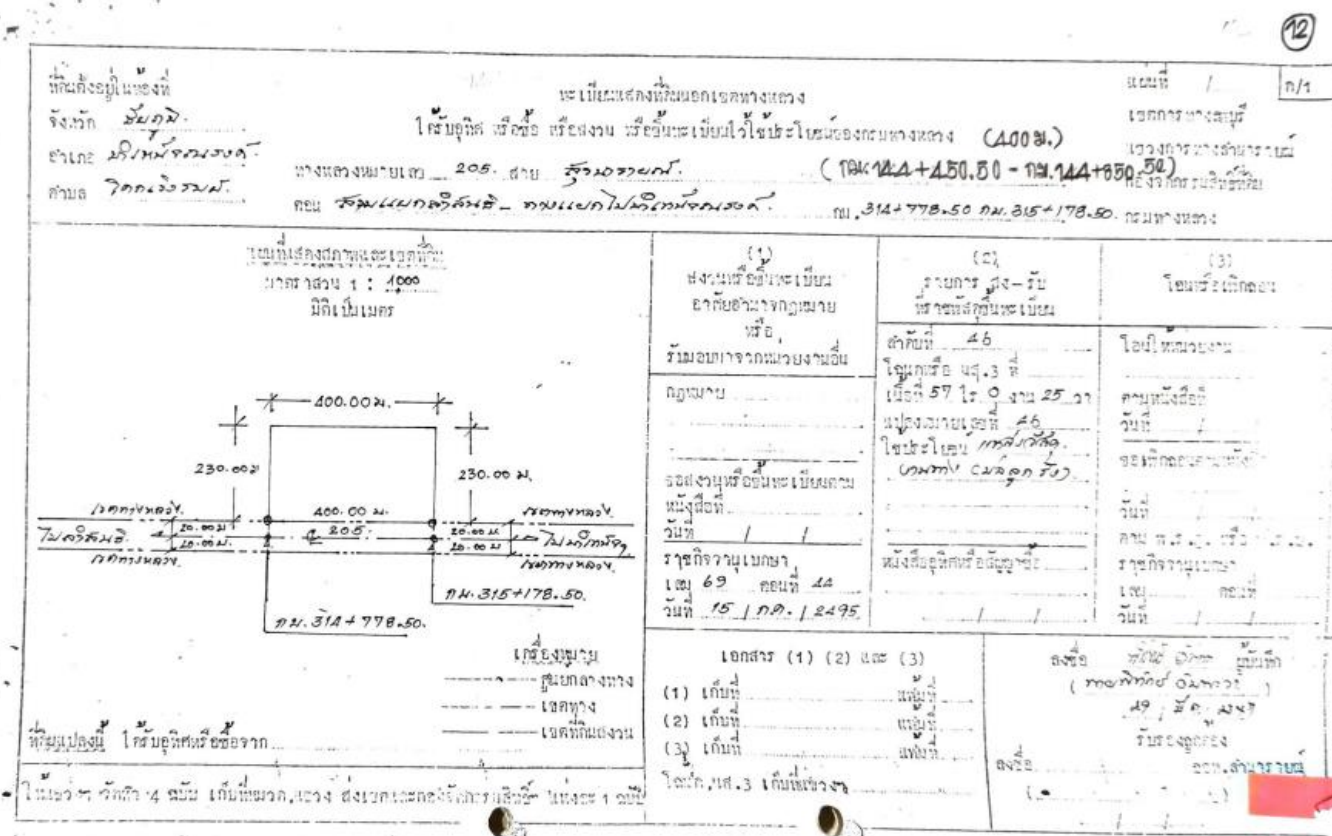 12
ที่ดินตั้งอยู่ในท้องที่
จังหวัด ชัยภูมิ.
อำเภอ บำเหน็จณรงค์.
ตำบล
ทะเบียนแสดงที่ดินนอกเขตทางหลวง
ได้รับอุทิศ หรือซื้อ หรือสงวน หรือขึ้นทะเบียนไว้ใช้ประโยชน์ของกรมทางหลวง (400 ม.)
ทางหลวงหมายเลข 205. สาย สุรนารายณ์. (กม.144+450.50 - กม.144+850.50)
ตอน สามแยกลำสนธิ - ทางแยกไปบำเหน็จณรงค์. กม. 314+778.50 กม. 315+178.50.
แผ่นที่ 1
ก/1
เขตการทางลพบุรี
แขวงการทางลำนารายณ์
กองจัดกรรมสิทธิ์ที่ดิน
กรมทางหลวง
แผนที่แสดงสภาพและเขตที่ดิน
มาตราส่วน 1 : 1000
มิติเป็นเมตร
400.00 ม.
230.00 ม
230.00 ม.
เขตทางหลวง.
400.00 ม.
เขตทางหลวง.
ไปลำสนธิ.
20.00 ม
20.00 ม.
205.
20.00 ม
20.00 ม.
ไปบำเหน็จฯ
เขตทางหลวง.
เขตทางหลวง.
กม. 315+178.50.
กม. 314+778.50.
เครื่องหมาย
ศูนย์กลางทาง
เขตทาง
เขตที่ดินสงวน
ที่ดินแปลงนี้ ได้รับอุทิศหรือซื้อจาก
ให้แขวงฯ จัดทำ 4 ฉบับ เก็บที่หมวด,แขวง ส่งเขตและกองจัดกรรมสิทธิ์ฯ แห่งละ 1 ฉบับ
(1)
สงวนหรือขึ้นทะเบียน
อาศัยอำนาจกฎหมาย
หรือ
รับมอบมาจากหน่วยงานอื่น
กฎหมาย
ขอสงวนหรือขึ้นทะเบียนตาม
หนังสือที่
วันที่ / /
ราชกิจจานุเบกษา
เล่ม 69 ตอนที่ 44
วันที่ 15 / กค. / 2495
(2)
รายการ ส่ง-รับ
ที่ราชพัสดุขึ้นทะเบียน
ลำดับที่ 46
โฉนดหรือ นส.3 ที่
เนื้อที่ 57 ไร่ 0 งาน 25 วา
แปลงหมายเลขที่ 46
ใช้ประโยชน์ แหล่งวัสดุ.
งานทาง (บ่อลูกรัง)
หนังสืออุทิศหรือสัญญาซื้อ
/ /
(3)
โอนหรือเพิกถอน
โอนให้หน่วยงาน
ตามหนังสือที่
วันที่ / /
ขอเพิกถอนตามหนังสือที่
วันที่ / /
ตาม พ.ร.ฎ. หรือ พ.ร.บ.
ราชกิจจานุเบกษา
เล่ม ตอนที่
วันที่ / /
เอกสาร (1) (2) และ (3)
(1) เก็บที่ แฟ้มที่
(2) เก็บที่ แฟ้มที่
(3) เก็บที่ แฟ้มที่
โฉนด,นส.3 เก็บที่แขวงฯ
ลงชื่อ ผู้บันทึก
รับรองถูกต้อง
ลงชื่อ ลำนารายณ์
( )
/ /